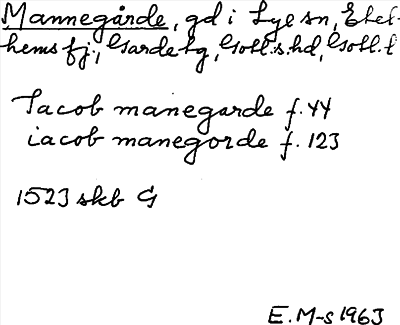 Mannegårde, gd i Lye sn, Etel-
hems fj., Garde tg, Gotl.s.hd, Gotl.l
Jacob manegarde f. 44
iacob manegorde f. 123
1523 skb G
E. M-s 1963